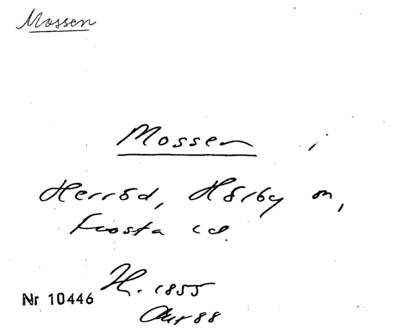 Mossen
Mossen i
Herröd, Hörby sn,
Frosta hd.
H. 1855
Nr 10446